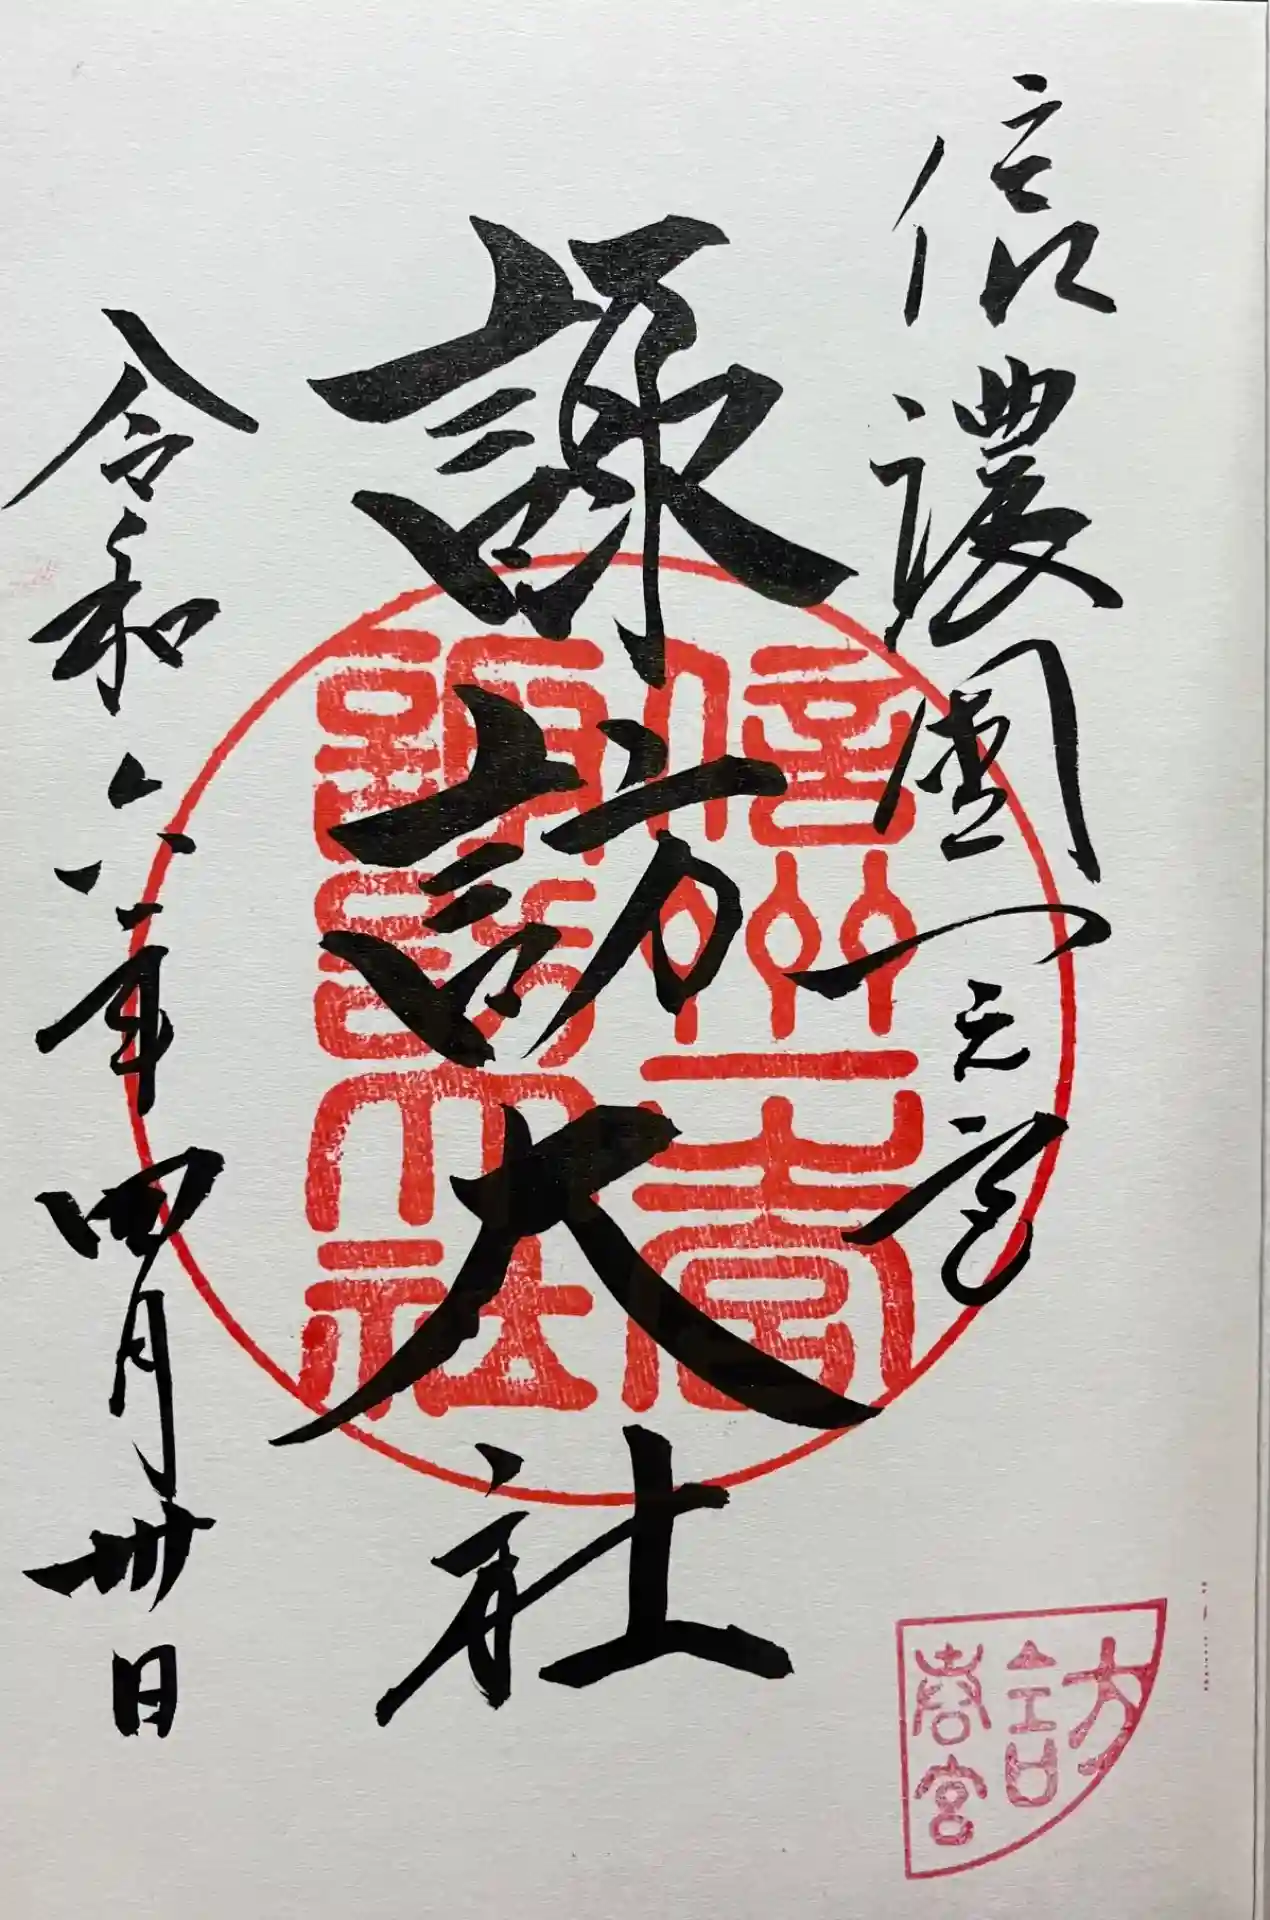 信濃國一之宮
諏訪大社
令和六年四月卅日
信州一
宮
諏訪
大社
訪
春宮